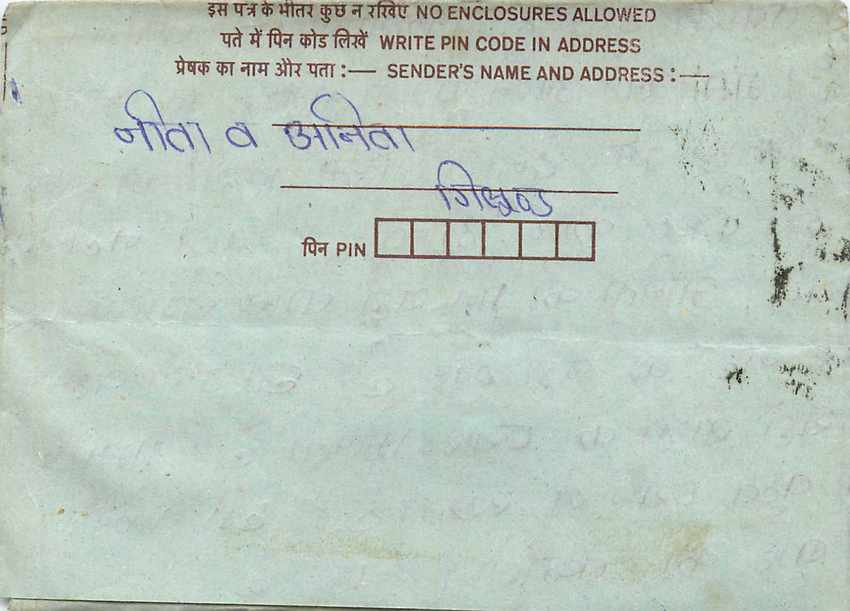 इस पत्र के भीतर कुछ न रखिए NO ENCLOSURES ALLOWED
पते में पिन कोड लिखें WRITE PIN CODE IN ADDRESS
प्रेषक का नाम और पता :— SENDER'S NAME AND ADDRESS :—
नीता व अनिता
पिन PIN